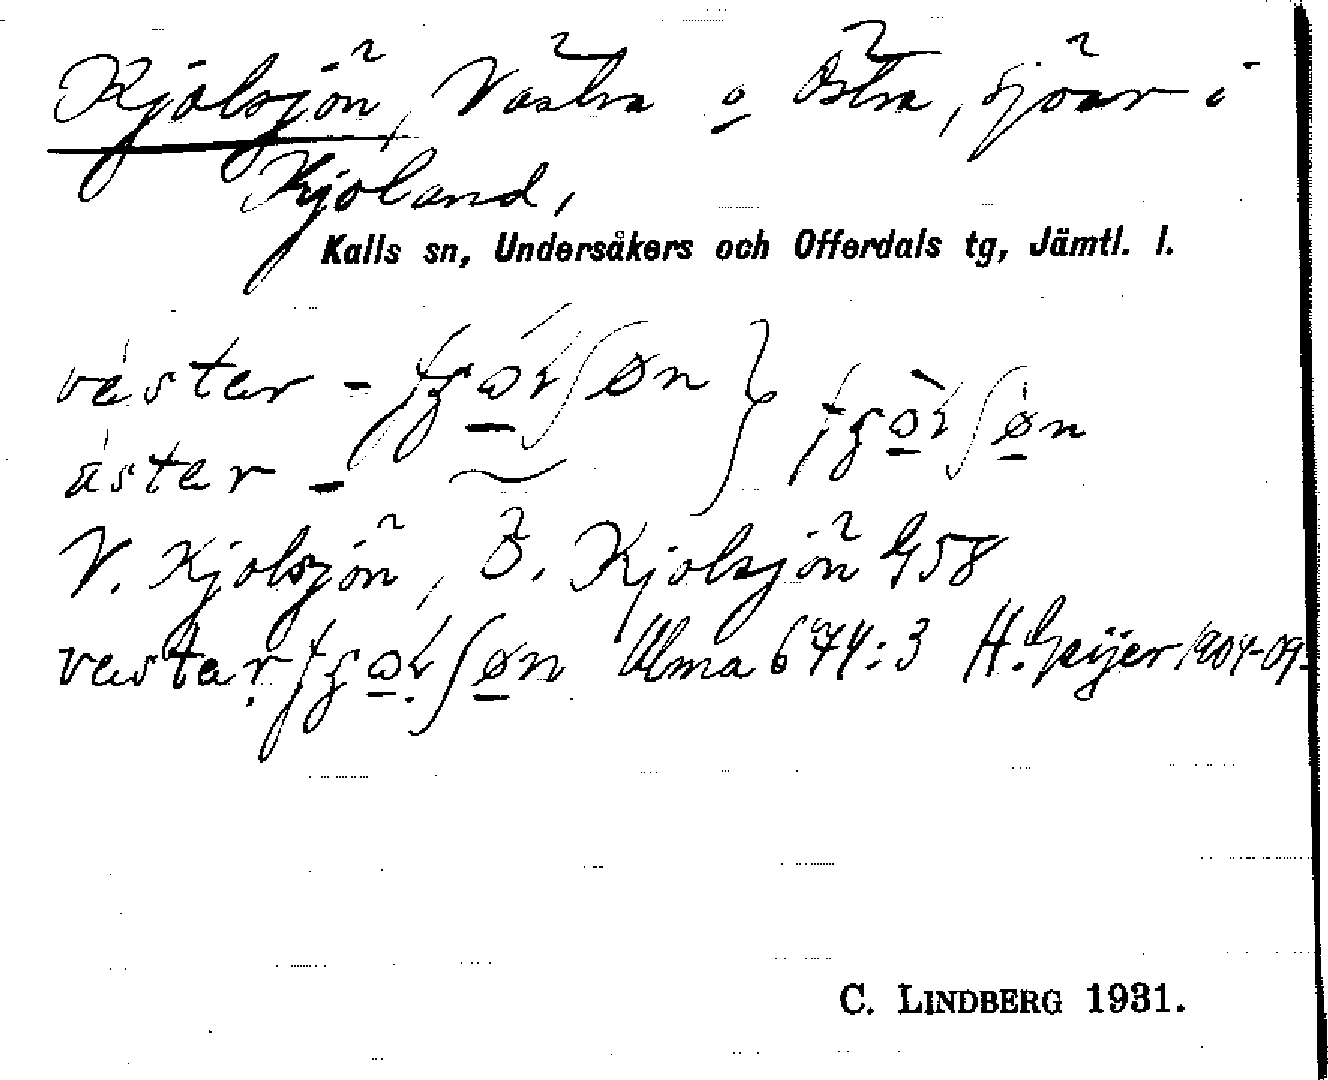 Kjolsjön, Västra o Östra, sjöar i
Kjoland,
Kalls sn, Undersåkers och Offerdals tg, Jämtl. l.
väster -
äster -
V. Kjolsjön, Ö. Kjolsjön G58
vester Ulma 674:3 H. Geijer 1904-09
C. LINDBERG 1931.